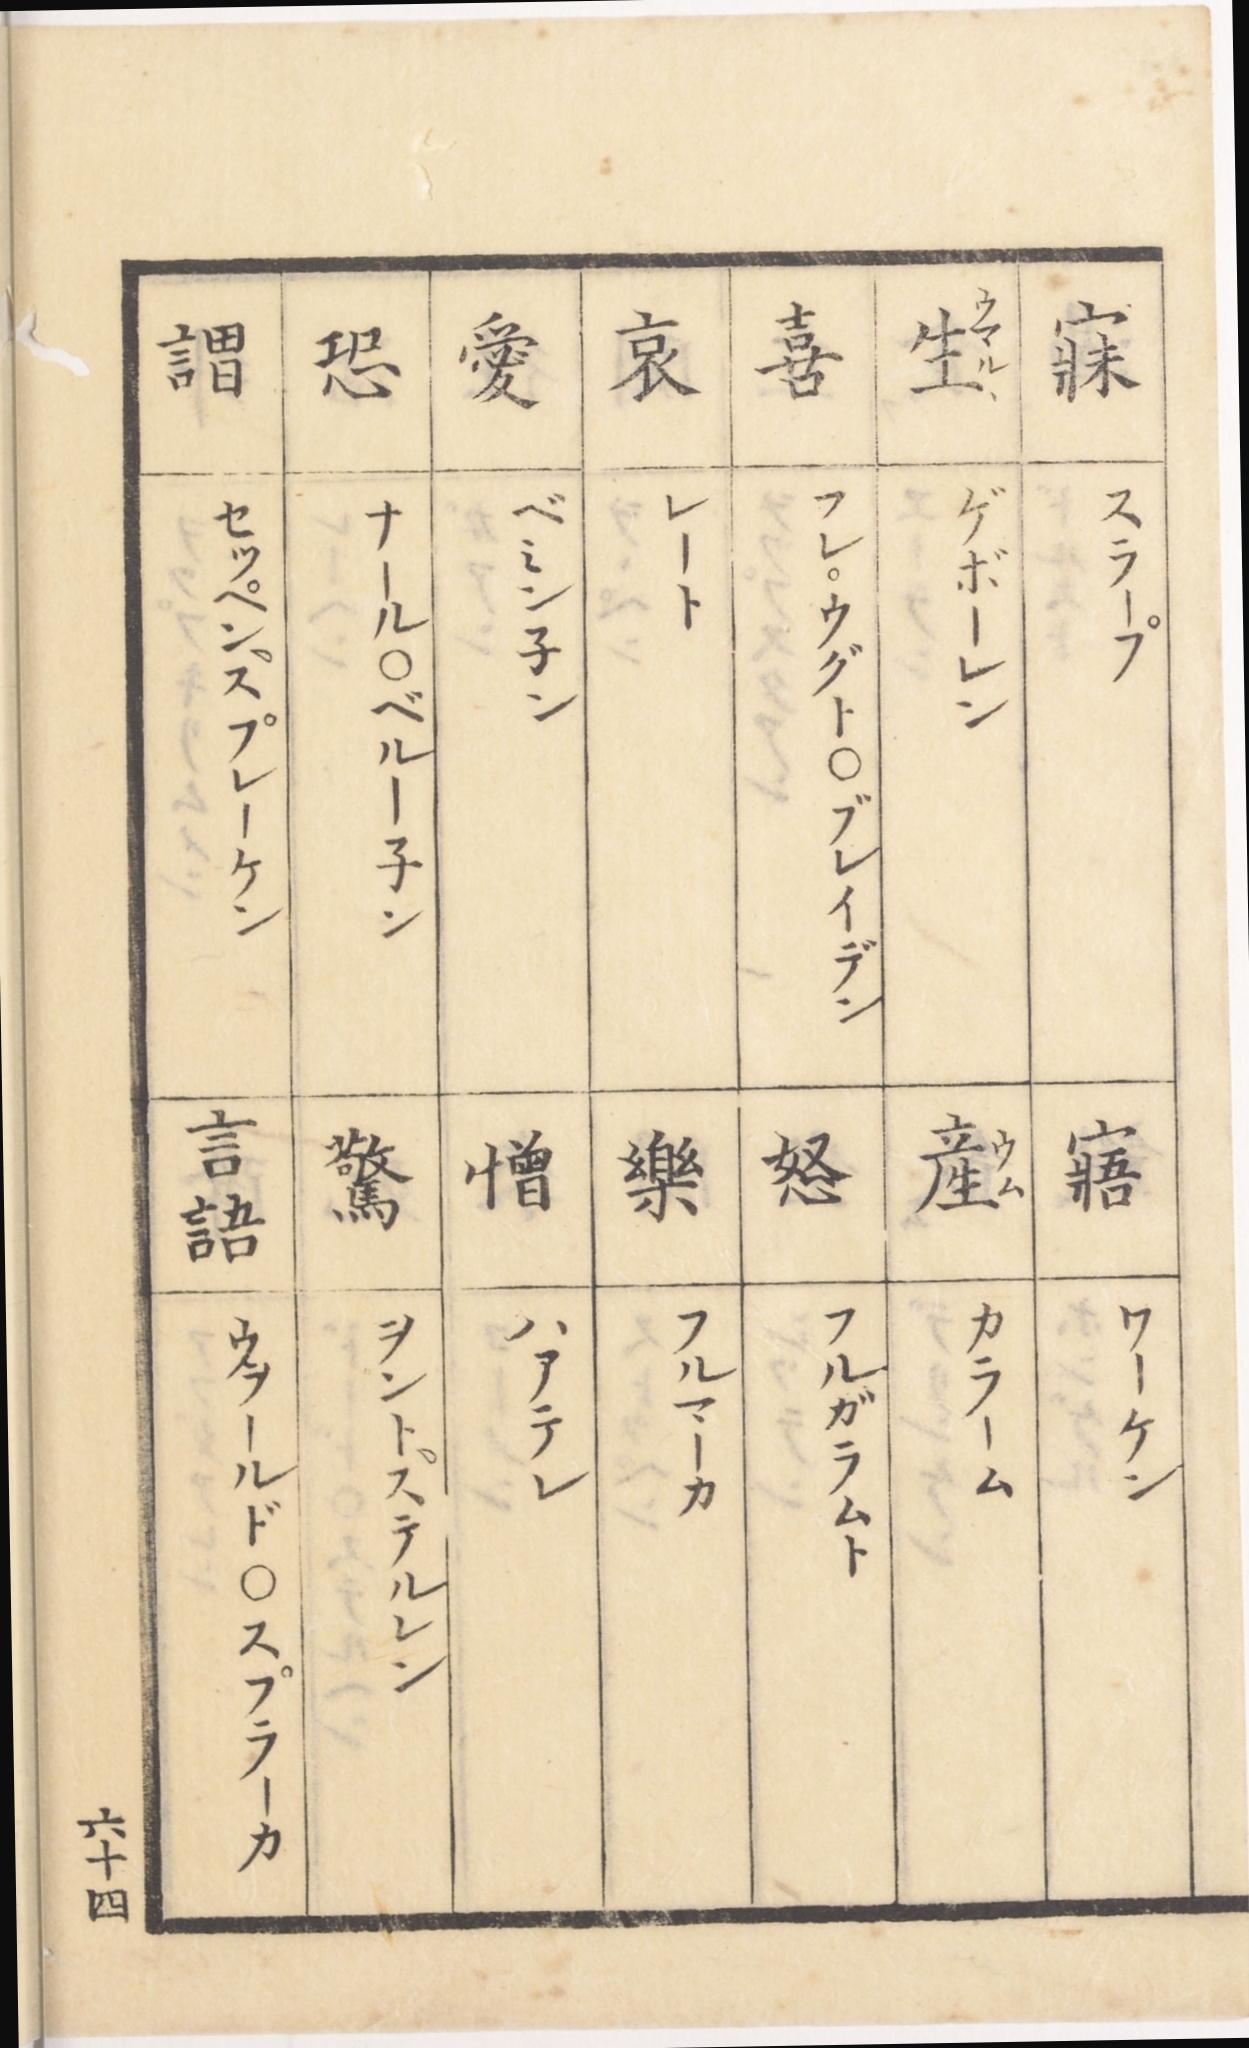 寐 スラープ
寤 ワーケン
生 ウマルヽ ゲボーレン
産 ウム カラーム
喜 フレ。ウグト〇ブレイデン
怒 フルガラムト
哀 レート
樂 フルマーカ
愛 ベミン子ン
憎 ハアテレ
恐 ナール〇ベルー子ン
驚 ヲントプステルレン
謂 セッペンスプレーケン
言語 ウヲールド〇スプラーカ
六十四